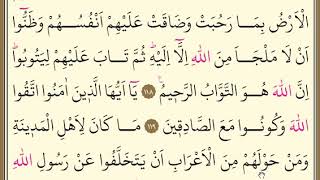 الْاَرْضُ بِمَا رَحُبَتْ وَضَاقَتْ عَلَيْهِمْ اَنْفُسُهُمْ وَظَنُّٓوا
اَنْ لَا مَلْجَاَ مِنَ اللهِ اِلَّٓا اِلَيْهِۜ ثُمَّ تَابَ عَلَيْهِمْ لِيَتُوبُواۜ
اِنَّ اللهَ هُوَ التَّوَّابُ الرَّحٖيمُ ١١٨ يَٓا اَيُّهَا الَّذٖينَ اٰمَنُوا اتَّقُوا
اللهَ وَكُونُوا مَعَ الصَّادِقٖينَ ١١٩ مَا كَانَ لِاَهْلِ الْمَدٖينَةِ
وَمَنْ حَوْلَهُمْ مِنَ الْاَعْرَابِ اَنْ يَتَخَلَّفُوا عَنْ رَسُولِ اللهِ